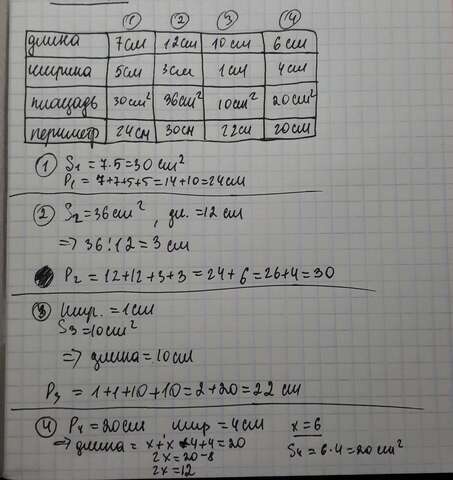 ① ② ③ ④
длина 7см 12см 10см 6см
ширина 5см 3см 1см 4см
площадь 30см² 36см² 10см² 20см²
периметр 24см 30см 22см 20см
① S₁ = 7·5 = 30 см²
P₁ = 7+7+5+5 = 14+10 = 24см
② S₂ = 36см², дл. = 12 см
=> 36:12 = 3 см
P₂ = 12+12+3+3 = 24+6 = 26+4 = 30
③ шир. = 1см
S₃ = 10см²
=> длина = 10см
P₃ = 1+1+10+10 = 2+20 = 22 см
④ P₄ = 20см шир = 4см x = 6
=> длина = x+x+4+4 = 20 S₄ = 6·4 = 20см²
2x = 20-8
2x = 12